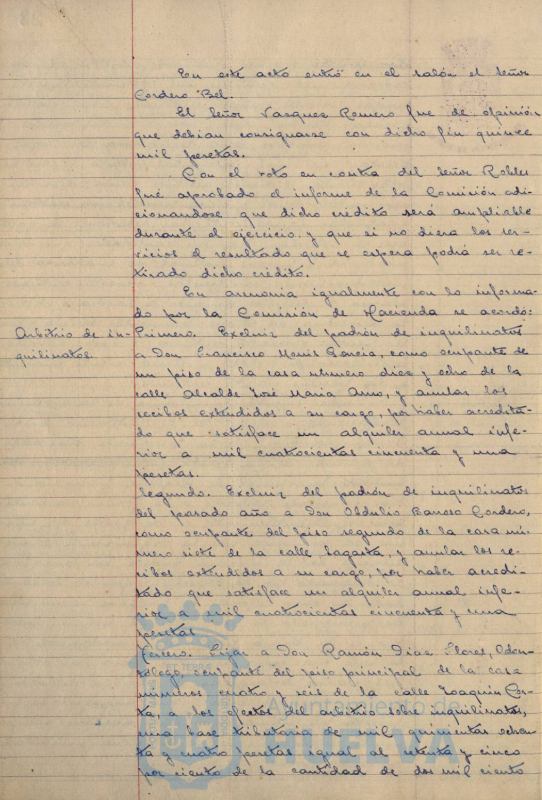 En este acto entró en el salón el Señor
Cordero Bel.
El Señor Vazquez Romero fue de opinión
que debian consignarse con dicho fin quince
mil pesetas.
Con el voto en contra del Señor Robles
fué aprobado el informe de la Comisión adi-
cionandose que dicho crédito será ampliable
durante el ejercicio y que si no diera los ser-
vicios el resultado que se espera podrá ser re-
tirado dicho crédito.
En armonia igualmente con lo informa-
do por la Comisión de Hacienda se acordó:
Arbitrio de in-
quilinatos.
Primero. Excluir del padrón de inquilinatos
a Don Francisco Monis Garcia, como ocupante de
un piso de la casa número diez y ocho de la
calle Alcalde José Maria Amo, y anular los
recibos extendidos a su cargo, por haber acredita-
do que satisface un alquiler anual infe-
rior a mil cuatrocientas cincuenta y una
pesetas.
Segundo. Excluir del padrón de inquilinatos
del pasado año a Don Obdulio Barroso Cordero,
como ocupante del piso segundo de la casa nú-
mero siete de la calle Sagasta, y anular los re-
cibos extendidos a su cargo, por haber acredi-
tado que satisface un alquiler anual infe-
rior a mil cuatrocientas cincuenta y una
pesetas
Tercero. Fijar a Don Ramón Diaz Flores, Odon-
tólogo, ocupante del piso principal de la casa
números cuatro y seis de la calle Joaquin Cos-
ta, a los efectos del arbitrio sobre inquilinatos,
una base tributaria de mil quinientas ochen-
ta y cuatro pesetas igual al setenta y cinco
por ciento de la cantidad de dos mil ciento
Ayuntamiento de
HUELVA